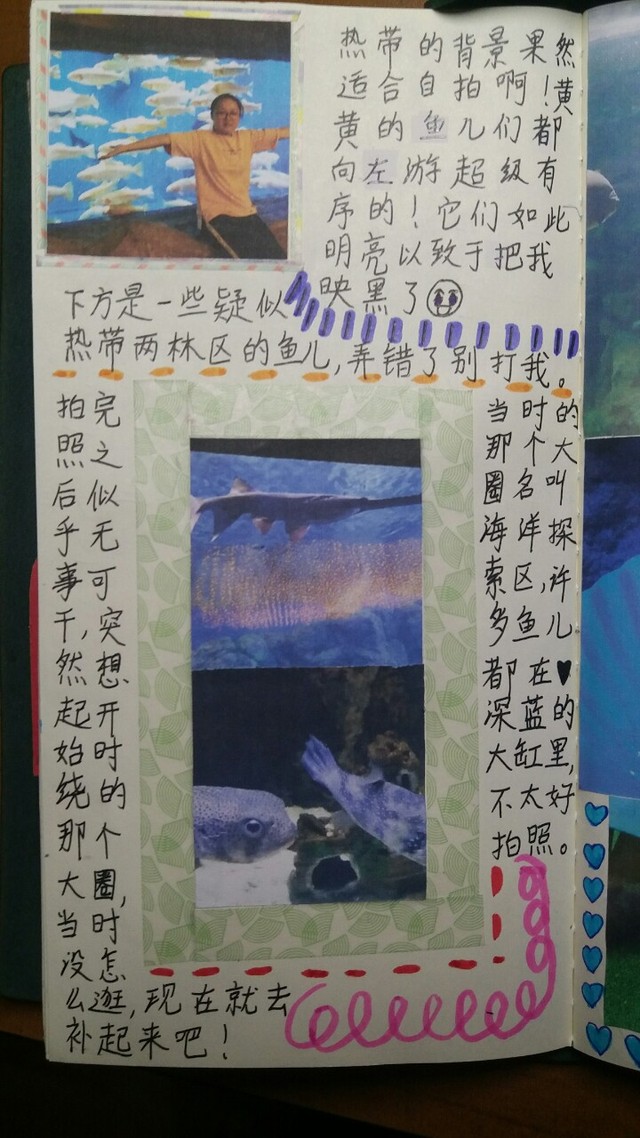 热带的背景果然
适合自拍啊！黄
黄的鱼儿们都
向左游超级有
序的！它们如此
明亮以致于把我
映黑了
下方是一些疑似
热带雨林区的鱼儿，弄错了别打我。
拍完
照之
后似
乎无
事可
干，突
然想
起开
始时
绕的
那个
大圈，
当时
没怎
么逛，现在就去
补起来吧！
当时的
那个大
圈名叫
海洋探
索区，许
多鱼儿
都在
深蓝的
大缸里，
不太好
拍照。